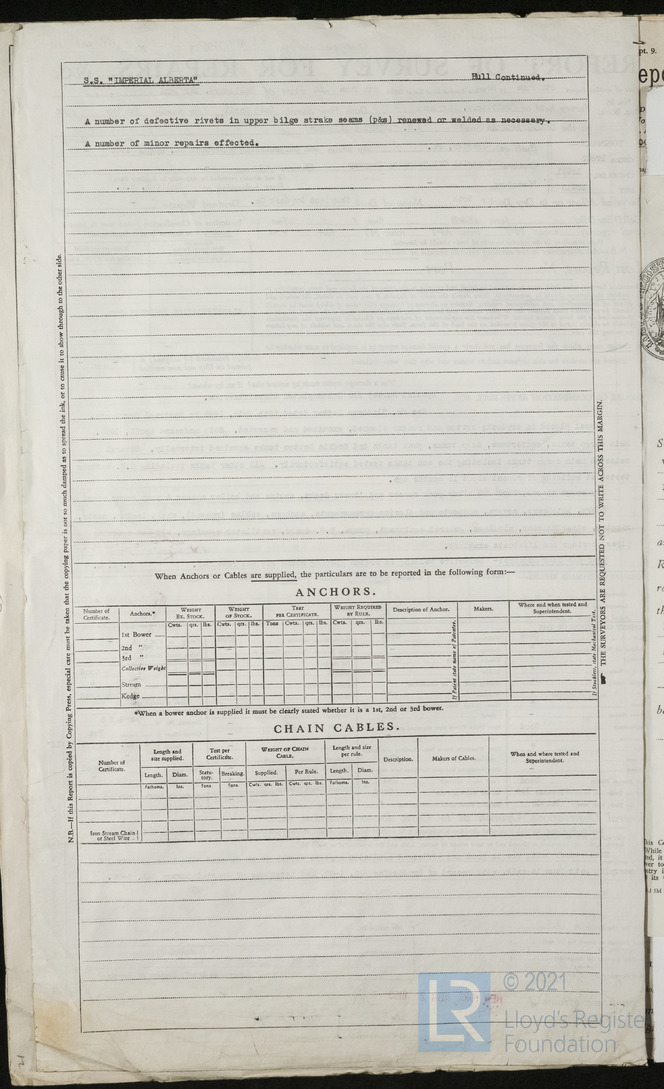 S.S. "IMPERIAL ALBERTA" Hull Continued.
A number of defective rivets in upper bilge strake seams (p&s) renewed or welded as necessary.
A number of minor repairs effected.
N.B.—If this Report is copied by Copying Press, especial care must be taken that the copying paper is not so much damped as to spread the ink, or to cause it to show through to the other side.
THE SURVEYORS ARE REQUESTED NOT TO WRITE ACROSS THIS MARGIN.
When Anchors or Cables are supplied, the particulars are to be reported in the following form:—
ANCHORS.
Number of Certificate. Anchors.* WEIGHT EX. STOCK. WEIGHT OF STOCK. TEST PER CERTIFICATE. WEIGHT REQUIRED BY RULE. Description of Anchor. Makers. Where and when tested and Superintendent.
Cwts. qrs. lbs. Cwts. qrs. lbs. Tons Cwts. qrs. lbs. Cwts. qrs. lbs.
1st Bower
2nd "
3rd "
Collective Weight
Stream
Kedge
If Patent state name of Patentee.
If Stockless, state Mechanical Test.
*When a bower anchor is supplied it must be clearly stated whether it is a 1st, 2nd or 3rd bower.
CHAIN CABLES.
Number of Certificate. Length and size supplied. Test per Certificate. WEIGHT OF CHAIN CABLE. Length and size per rule. Description. Makers of Cables. When and where tested and Superintendent.
Length. Diam. Statutory. Breaking. Supplied. Per Rule. Length. Diam.
Fathoms. Ins. Tons. Tons. Cwts. qrs. lbs. Cwts. qrs. lbs. Fathoms. Ins.
Iron Stream Chain
or Steel Wire
LR
© 2021
Lloyd's Register
Foundation